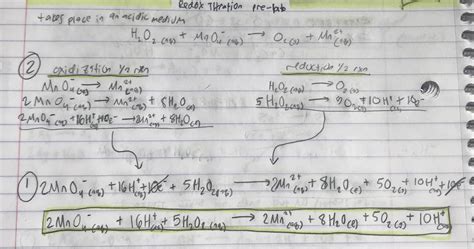 Redox Titration pre-lab
takes place in an acidic medium
H₂O₂ (aq) + MnO₄⁻ (aq) → O₂ (g) + Mn²⁺ (aq)
② oxidization ½ rxn
MnO₄⁻ (aq) → Mn²⁺ (aq)
2 MnO₄⁻ (aq) → Mn²⁺ (aq) + 8H₂O (l)
2MnO₄⁻ (aq) + 16H⁺ (aq) + 10e⁻ → 2Mn²⁺ (aq) + 8H₂O (l)
reduction ½ rxn
H₂O₂ (aq) → O₂ (g)
5 H₂O₂ (aq) → 5O₂ (g) + 10H⁺ (aq) + 10e⁻
① 2MnO₄⁻ (aq) + 16H⁺ (aq) + 10e⁻ + 5H₂O₂ (aq) → 2Mn²⁺ (aq) + 8H₂O (l) + 5O₂ (g) + 10H⁺ (aq) + 10e⁻
2MnO₄⁻ (aq) + 16H⁺ (aq) + 5H₂O₂ (aq) → 2Mn²⁺ (aq) + 8H₂O (l) + 5O₂ (g) + 10H⁺ (aq)